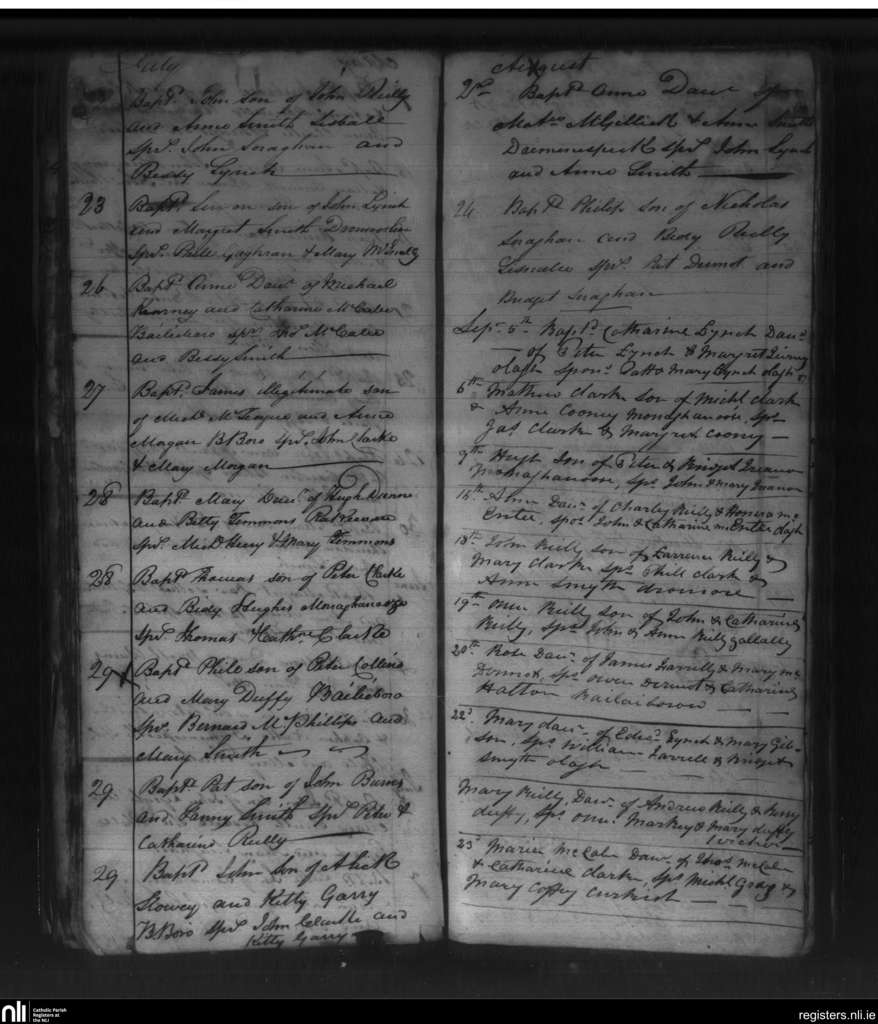 July
Bapt. John son of John Reilly
and Anne Smith Lisball
Spr. John Soraghan and
Bessy Lynch
23 Bapt. son of John Lynch
and Margret Smith
Spr. Phill Gaghran & Mary
26 Bapt. Anne Daur. of Michael
Kearney and Catharine McCabe
Bailieboro Spr. McCabe
and Bessy Smith
27 Bapt. James Illegitimate son
of Michl. McTeague and Anne
Morgan BBoro Spr. John Clarke
& Mary Morgan
28 Bapt. Mary Daur. of Hugh
and Betty Timmons
Spr. Michl. & Mary Timmons
28 Bapt. Thomas son of Peter Clarke
and Bidy Hughes Monaghanoose
Spr. Thomas & Cathr. Clarke
29 Bapt. Phile son of Peter Collins
and Mary Duffy Bailieboro
Spr. Bernard McPhillips and
Mary Smith
29 Bapt. Pat son of John Burns
and Fanny Smith Spr. Peter &
Catharine Reilly
29 Bapt. John son of
and Kitty Garry
BBoro Spr. John Clarke and
Kitty Garry
August
Bapt. Anne Daur
McGillick & Anne Smith
Spr. John Lynch
and Anne Smith
24 Bapt. Philip Son of Nicholas
Soraghan and Bidy Reilly
Spr. Pat Dermot and
Bridget Soraghan
Sepr. 5th Bapt. Catharine Lynch Daur.
of Peter Lynch & Margret
Spons. Patt & Mary Lynch
6th Mathew Clark son of Michl Clark
& Anne Cooney Monaghanoose, Sps.
Jas Clark & Margret Coony
9th Hugh Son of Peter & Bridget
Monaghanoose, Sps John & Mary
15th Daur. of Charley Reilly & Honora Mc
Entee, Sps. John & Catharine McEntee
18th John Reilly son of Larrence Reilly &
Mary Clarke Sps Phill Clark &
Anne Smyth
19th Owen Reilly Son of John & Catharine
Reilly, Sps John & Ann Reilly
20th Rose Daur. of James Farrelly & Mary Mc
Dermot, Sps Owen Dermot & Catharine
Hatton
22d. Mary daur. of Edwd. Lynch & Mary Gib-
son, Sps William Farrell & Bridget
Smyth
Mary Reilly, Daur. of Andrew Reilly &
duffy, Sps Owen Markey & Mary duffy
23d Maria McCabe Daur. of Thos. McCabe
& Catharine Clark, Sps Michl Gray &
Mary Coffey
nli
Catholic Parish
Registers at
the NLI
registers.nli.ie